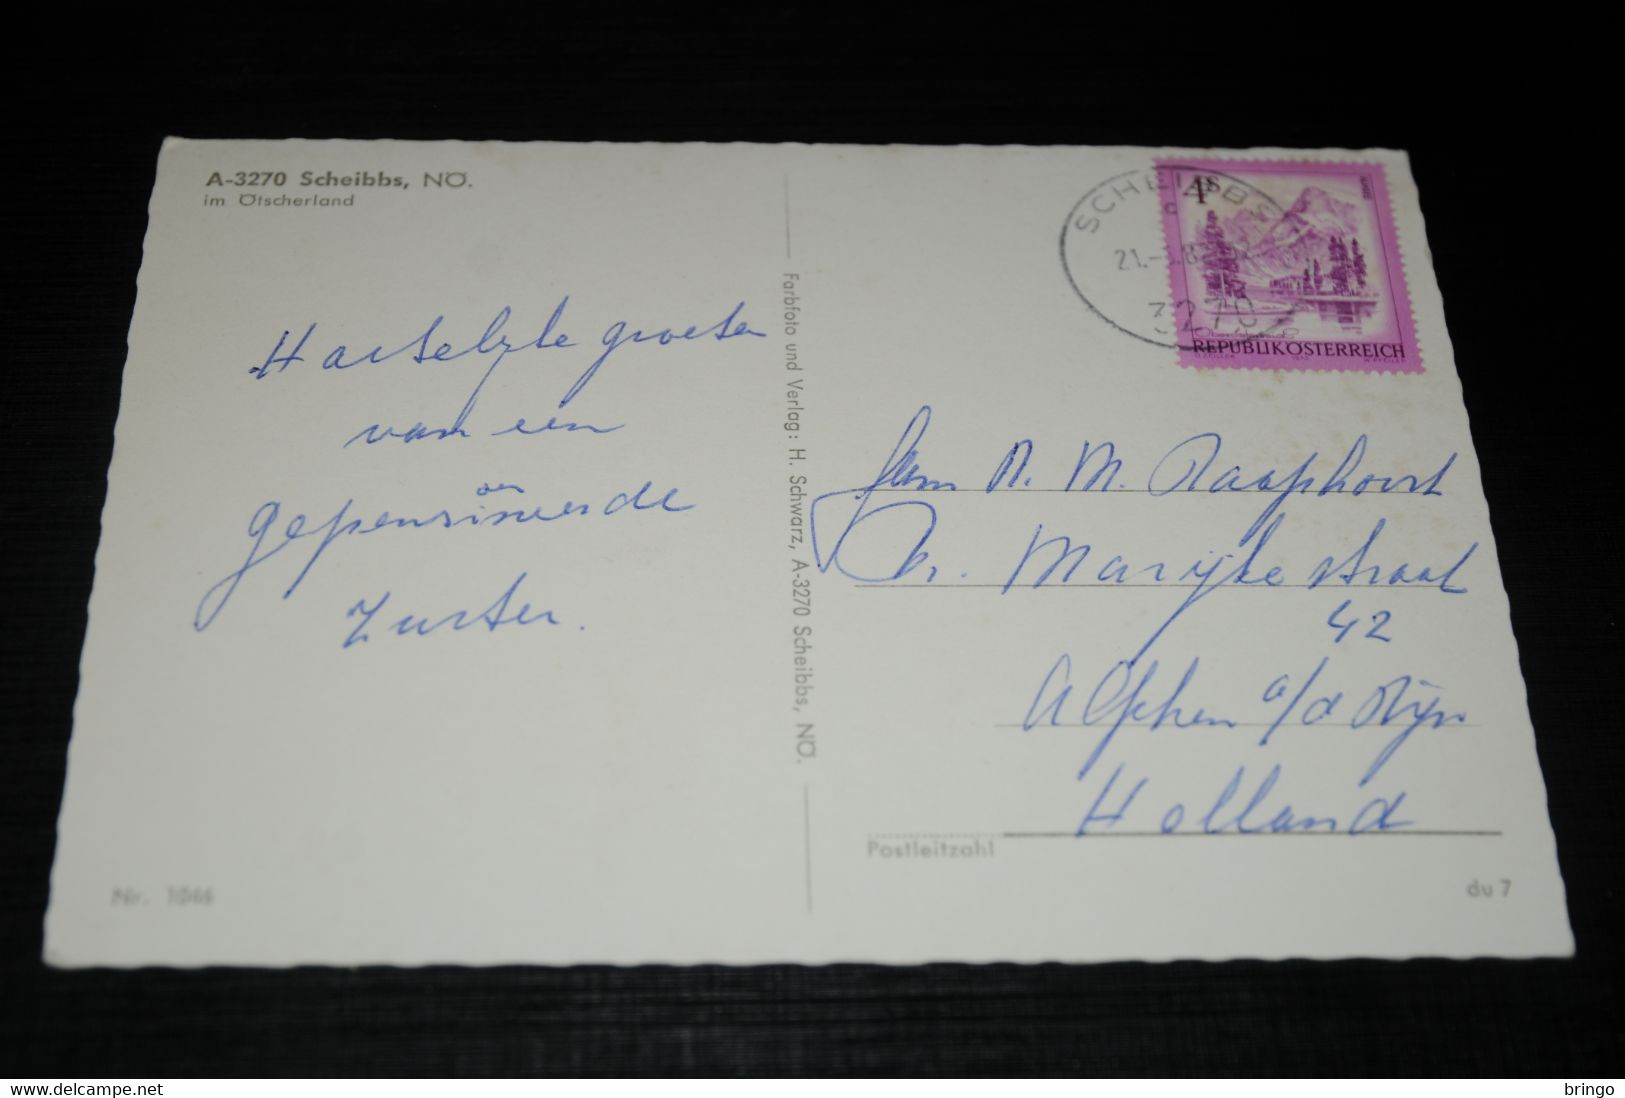 A-3270 Scheibbs, NÖ.
im Ötscherland
Hartelyke groeten
van een
gepensioneerde
zuster.
Farbfoto und Verlag: H. Schwarz, A-3270 Scheibbs, NÖ.
SCHEIBBS
21.-
3270
4 S
REPUBLIK ÖSTERREICH
Fam R. M. Raaphorst
Pr. Marijke straat
42
Alphen a/d Rijn
Holland
Postleitzahl
Nr. 1046
du 7
bringo